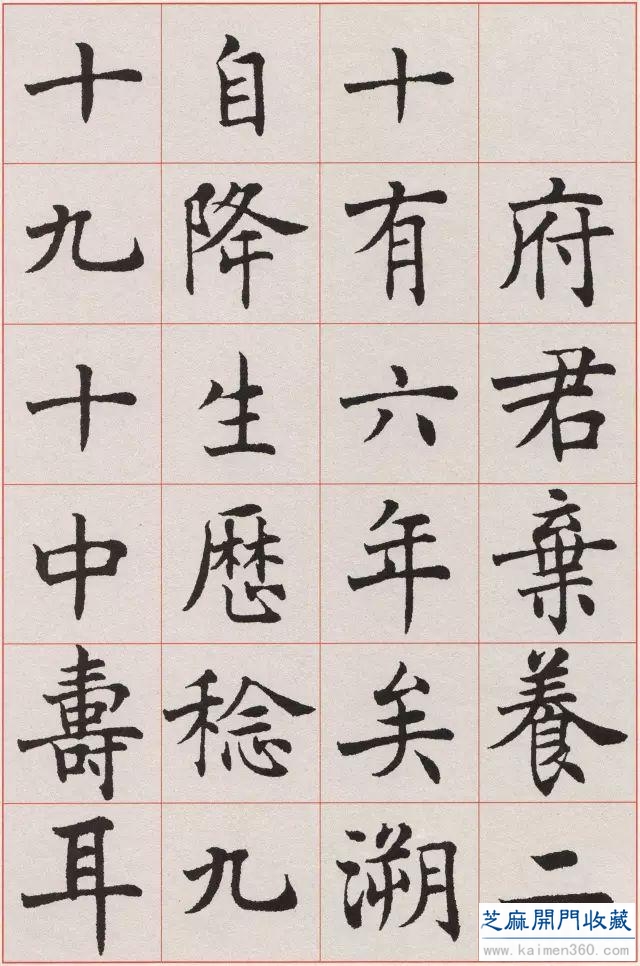 府君棄養二
十有六年矣溯
自降生歷稔九
十九十中壽耳
芝麻開門收藏
www.kaimen360.com